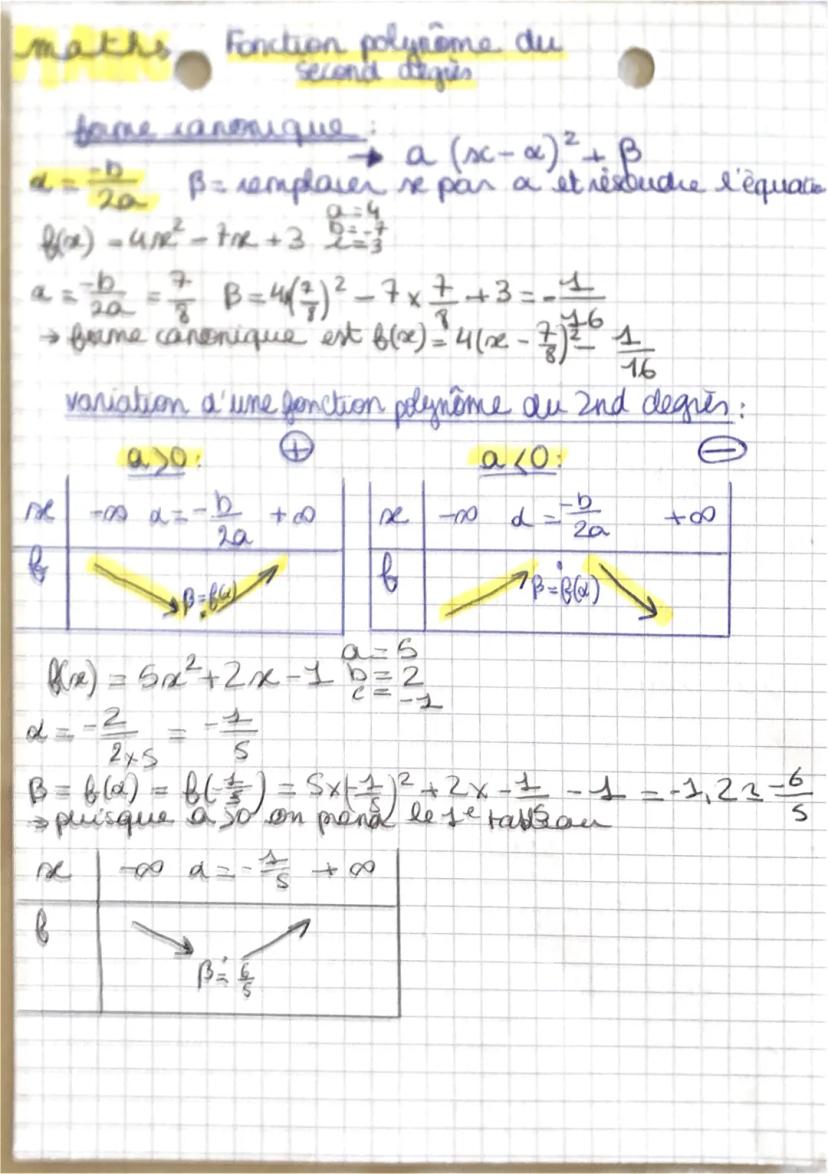 maths Fonction polynôme du
second degrés
forme canonique :
→ a (x-α)² + β
α = -b/2a β = remplacer x par α et résoudre l'équation
f(x) = 4x² - 7x + 3 a=4 b=-7 c=3
α = -b/2a = 7/8 β = 4(7/8)² - 7 × 7/8 + 3 = -1/16
→ forme canonique est f(x) = 4(x - 7/8)² - 1/16
variation d'une fonction polynôme du 2nd degrès :
a>0 : ⊕ a<0 : ⊖
x -∞ α = -b/2a +∞ x -∞ α = -b/2a +∞
f β = f(α) f β = f(α)
f(x) = 5x² + 2x - 1 a=5 b=2 c=-1
α = -2/2×5 = -1/5
β = f(α) = f(-1/5) = 5×(-1/5)² + 2× -1/5 - 1 = -1,2 = -6/5
→ puisque a>0 on prend le 1e tableau
x -∞ α = -1/5 +∞
f β = 6/5